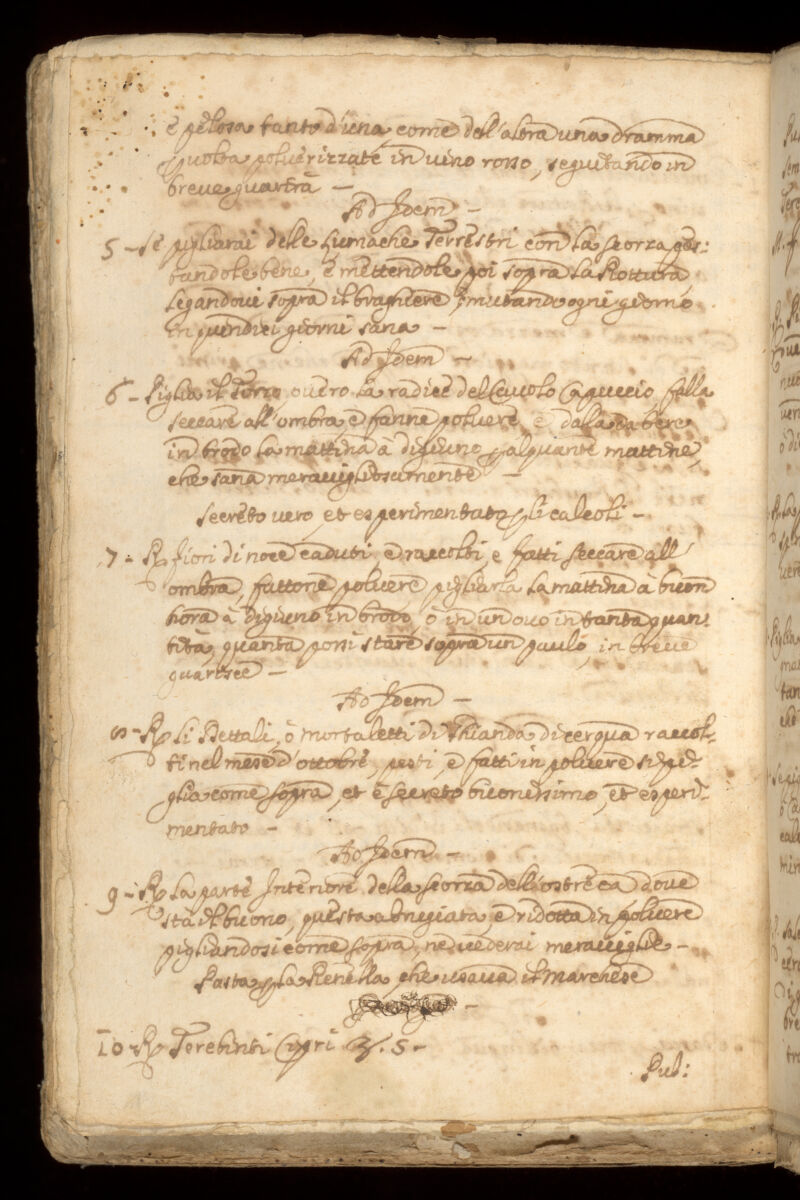 e pelosa tanto d'una, come dell'altra una dramma
p uolta poluerizzate in uino rosso, seguitando in
breue guarirà —
Ad Idem —
5 - Se pigliarai delle Lumache Terrestri con la scorza pes:
tandole bene, e mettendole poi sopra la Rottura,
Legandoui sopra il braghiere, mutando ogni giorno
in quindici giorni sana —
Ad Idem —
6 - Piglia il Torzo ouero la radice del Cauolo Capuccio, falla
seccare all'ombra, e fanne poluere, e dalla da bere
in brodo la mattina à digiuno p alquante mattine,
che sana merauigliosamente —
Secreto uero, et esperimentato p li calcoli —
7 - R fiori di noce caduti, e raccolti, e fatti seccare all'
ombra, fattone poluere pigliarla la mattina à buon
hora à digiuno in brodo, o in un ouo in tanta quan:
tità, quanta possi stare sopra un paulo, in breue
guarisce —
Ad Idem —
8 - R Li Bettali, ò mortaletti di Ghianda di cerqua raccol:
ti nel mese d'ottobre, pesti, e fatti in poluere si pi:
glia come sopra, et è secreto buonissimo, et esperi:
mentato —
Ad Idem —
9 - R La parte Interiore della scorza dell'ostreca doue
stà il buono, questa abrugiata, e ridotta in poluere
pigliandosi come sopra, ne uederai merauiglie —
Pasta p la Renella che usaua il Marchese
10 - R Terebinti Cipri ℥. 5 —
Pul: